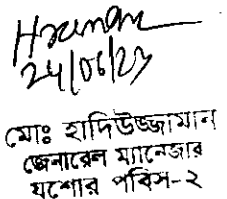 24/06/23
মোঃ হাদিউজ্জামান
জেনারেল ম্যানেজার
যশোর পবিস-২